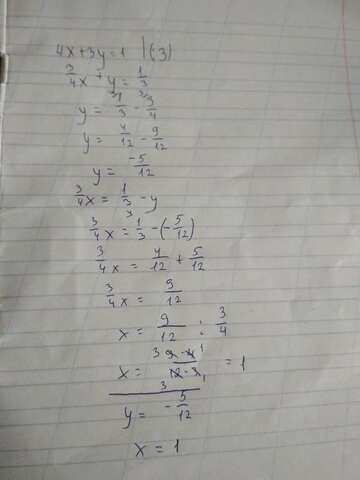 4x+3y=1 |(3)
3/4x + y = 1/3
y = 1/3 - 3/4
y = 4/12 - 9/12
y = -5/12
3/4x = 1/3 - y
3/4x = 1/3 - (-5/12)
3/4x = 4/12 + 5/12
3/4x = 9/12
x = 9/12 : 3/4
x = 9·4/12·3 = 1
y = -5/12
x = 1